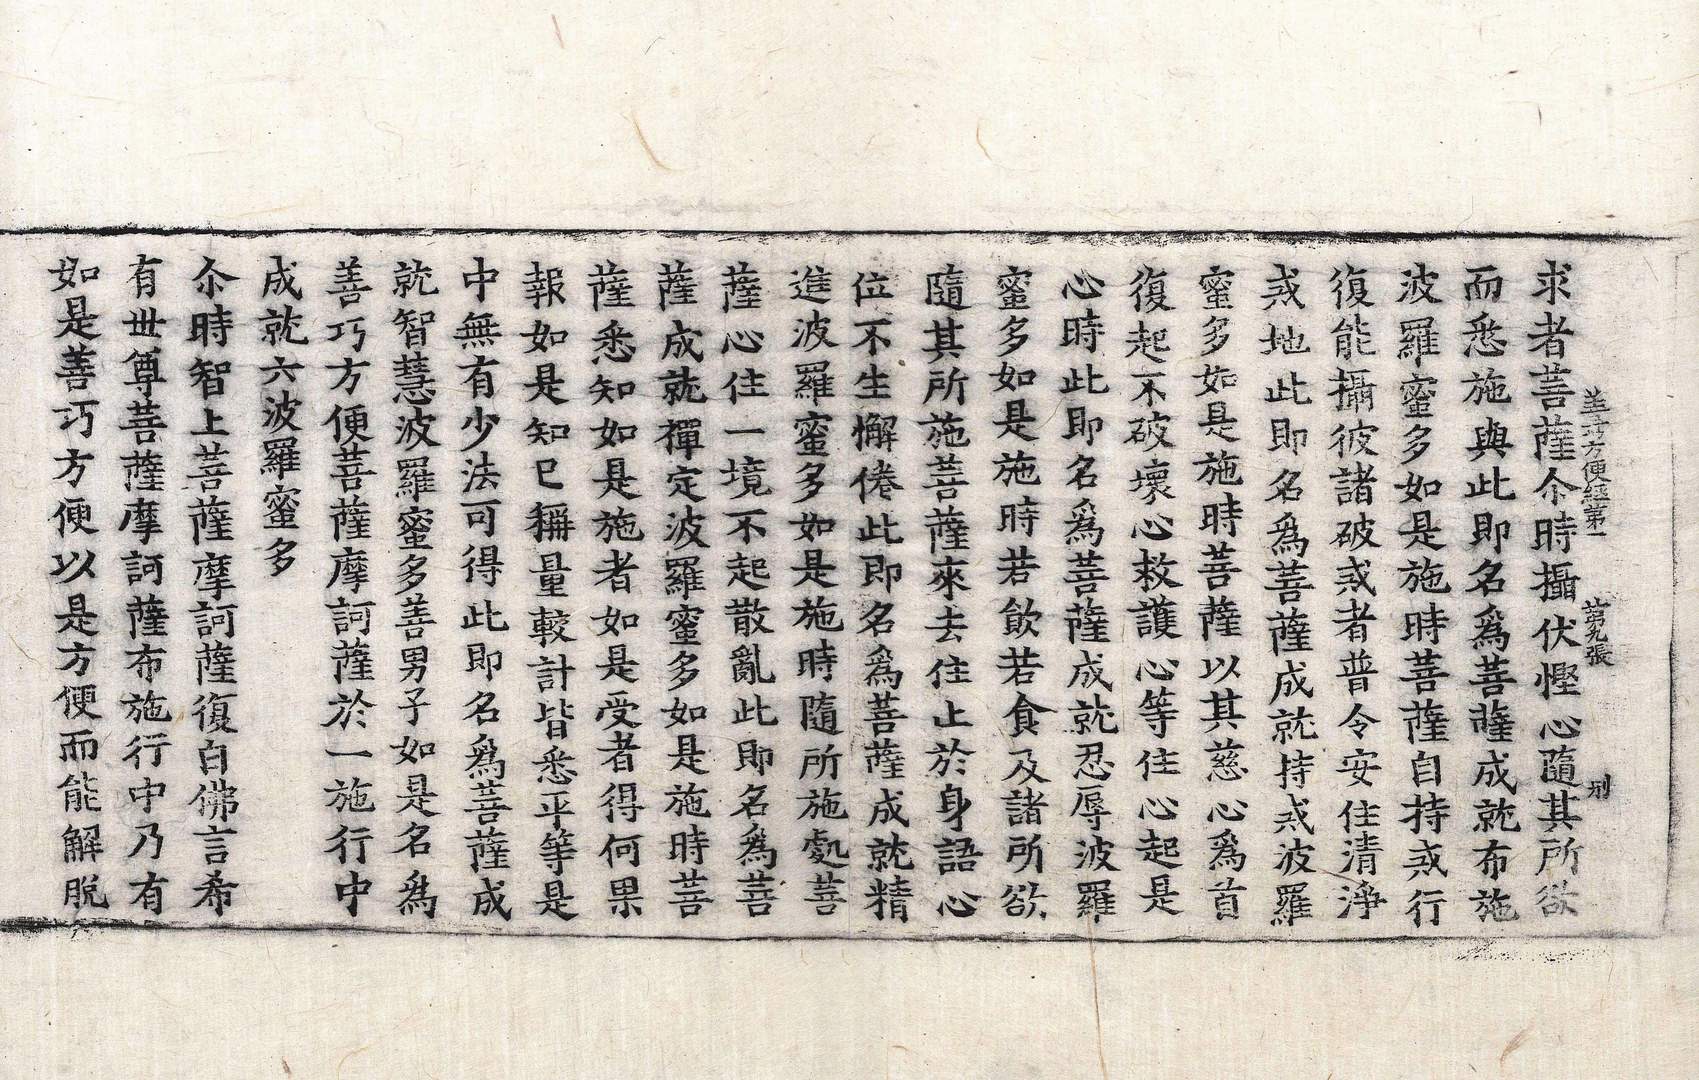 善巧方便經第一 第九張 刑
求者菩薩尒時攝伏慳心隨其所欲
而悉施與此即名爲菩薩成就布施
波羅蜜多如是施時菩薩自持戒行
復能攝彼諸破戒者普令安住清淨
戒地此即名爲菩薩成就持戒波羅
蜜多如是施時菩薩以其慈心爲首
復起不破壞心救護心等住心起是
心時此即名爲菩薩成就忍辱波羅
蜜多如是施時若飲若食及諸所欲
隨其所施菩薩來去住止於身語心
位不生懈倦此即名爲菩薩成就精
進波羅蜜多如是施時隨所施處菩
薩心住一境不起散亂此即名爲菩
薩成就禪定波羅蜜多如是施時菩
薩悉知如是施者如是受者得何果
報如是知已稱量較計皆悉平等是
中無有少法可得此即名爲菩薩成
就智慧波羅蜜多善男子如是名爲
善巧方便菩薩摩訶薩於一施行中
成就六波羅蜜多
尒時智上菩薩摩訶薩復白佛言希
有世尊菩薩摩訶薩布施行中乃有
如是善巧方便以是方便而能解脫